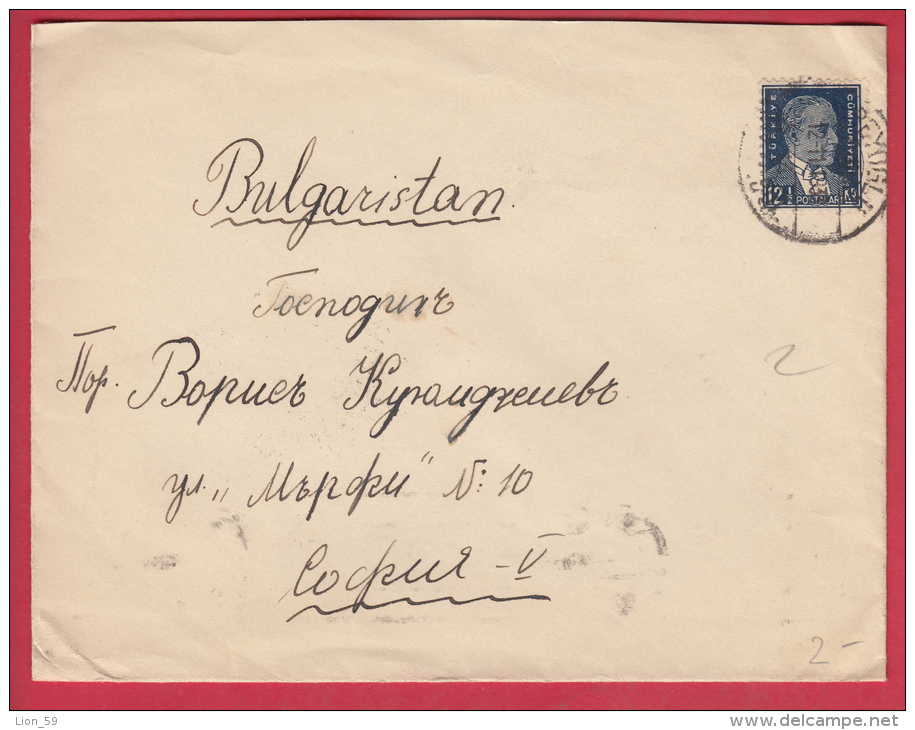 TÜRKİYE
CÜMHURİYETİ
12½
POSTALARI
BEYOĞLU
Bulgaristan.
Господинъ
Пор. Борисъ Куюмджиевъ
ул. „Мърфи" N: 10
София - V
2
2 -
Lion_59
www.delcampe.net